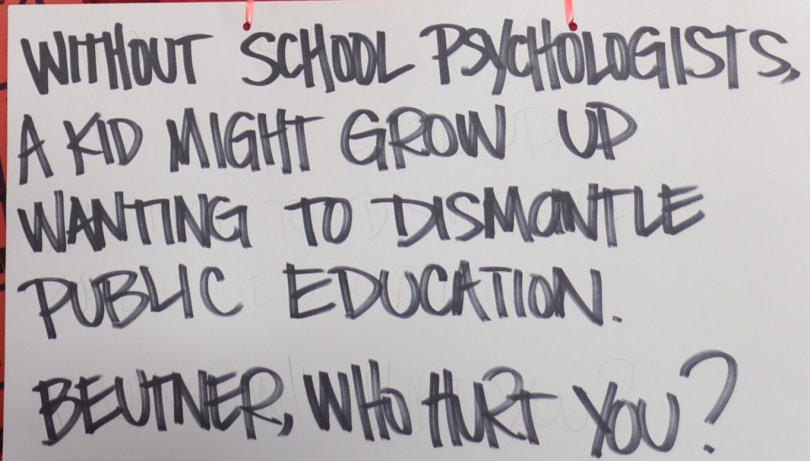 WITHOUT SCHOOL PSYCHOLOGISTS,
A KID MIGHT GROW UP
WANTING TO DISMANTLE
PUBLIC EDUCATION.
BEUTNER, WHO HURT YOU?